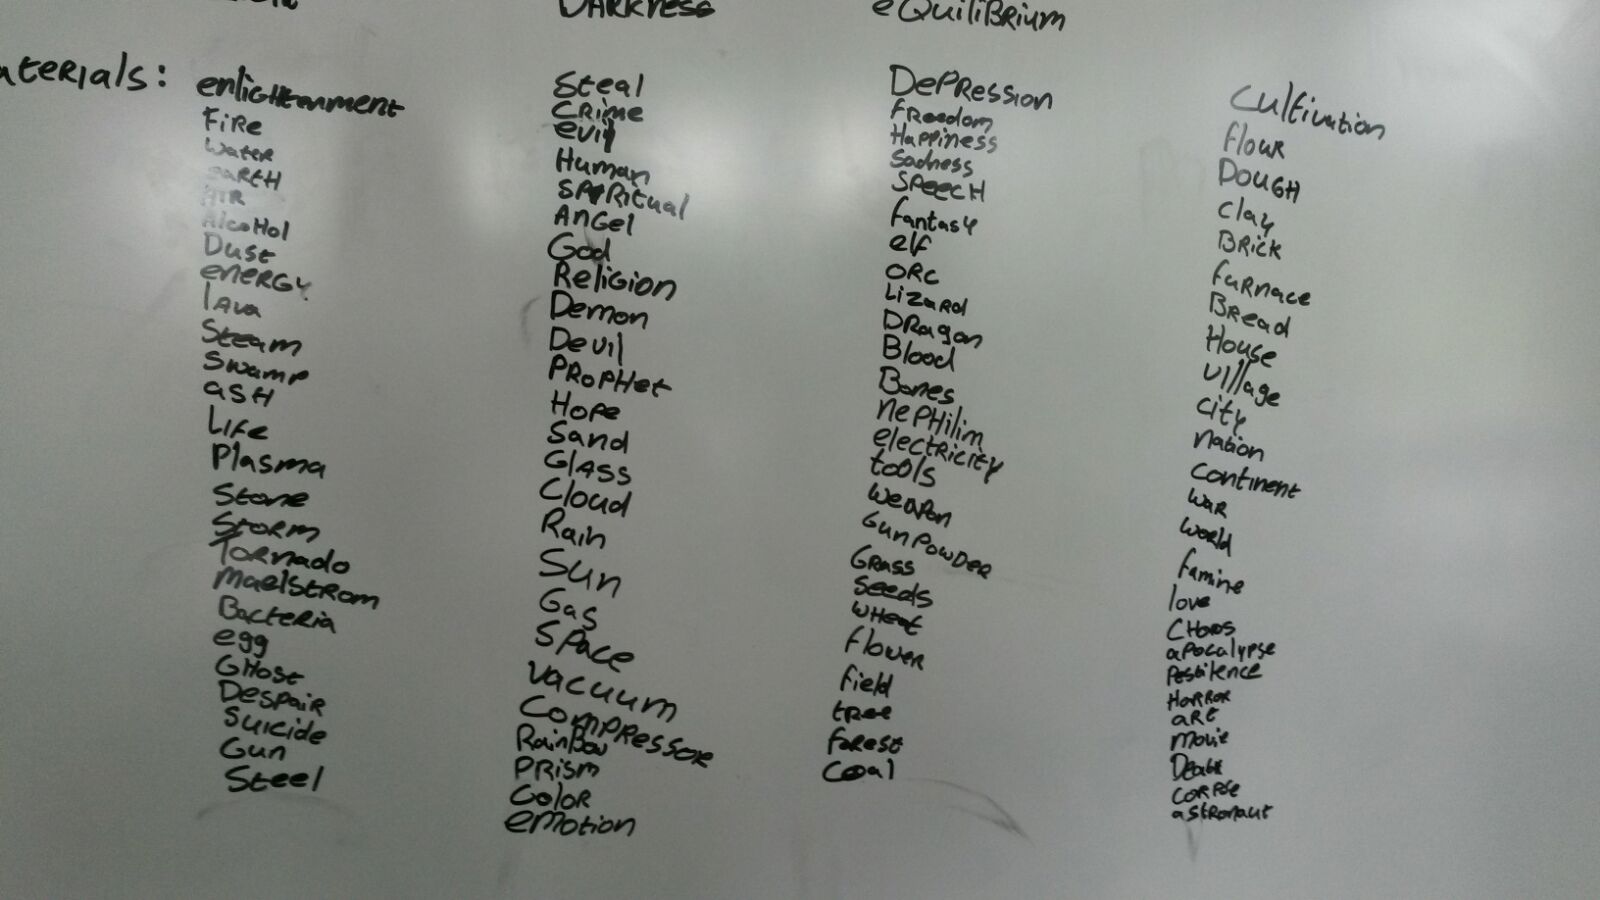 DARKNESS
eQuiliBrium
Materials:
enlightenment
Fire
water
earth
air
Alcohol
Dust
energy
lava
Steam
Swamp
ash
Life
Plasma
Stone
Storm
Tornado
Maelstrom
Bacteria
egg
Ghost
Despair
Suicide
Gun
Steel
Steal
Crime
evil
Human
Spiritual
Angel
God
Religion
Demon
Devil
Prophet
Hope
Sand
Glass
Cloud
Rain
Sun
Gas
Space
Vacuum
Compressor
Rainbow
Prism
Color
emotion
Depression
freedom
Happiness
Sadness
Speech
fantasy
elf
orc
Lizard
Dragon
Blood
Bones
nephilim
electricity
tools
weapon
Gunpowder
Grass
Seeds
wheat
flower
field
tree
forest
Coal
Cultivation
flour
Dough
Clay
Brick
furnace
Bread
House
village
city
nation
continent
war
world
famine
love
Chaos
apocalypse
Pestilence
Horror
art
movie
Death
corpse
astronaut